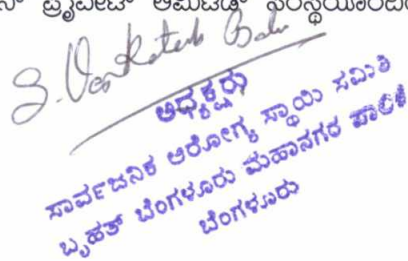 ಪ್ರೈವೇಟ್ ಲಿಮಿಟೆಡ್
S. Venkatesh Babu
ಅಧ್ಯಕ್ಷರು
ಸಾರ್ವಜನಿಕ ಆರೋಗ್ಯ ಸ್ಥಾಯಿ ಸಮಿತಿ
ಬೃಹತ್ ಬೆಂಗಳೂರು ಮಹಾನಗರ ಪಾಲಿಕೆ
ಬೆಂಗಳೂರು